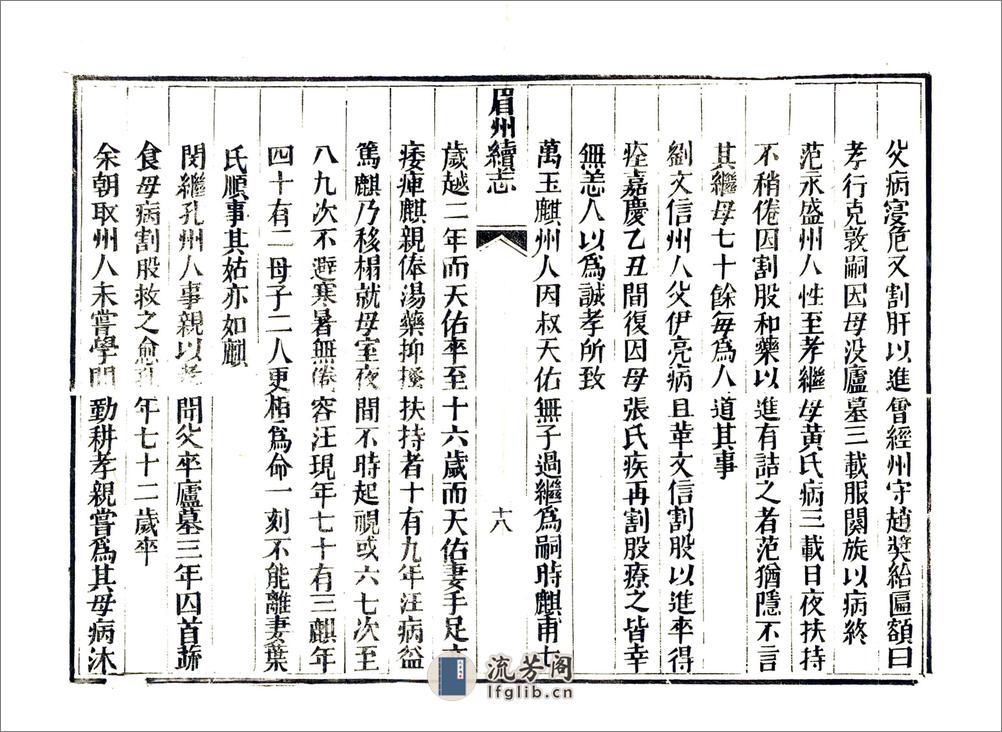 父病寖危又割肝以進曾經州守趙獎給匾額曰
孝行克敦嗣因母没廬墓三載服闋旋以病終
范永盛州人性至孝繼母黃氏病三載日夜扶持
不稍倦因割股和藥以進有詰之者范猶隱不言
其繼母七十餘每為人道其事
劉文信州人父伊亮病且革文信割股以進卒得
痊嘉慶乙丑間復因母張氏疾再割股療之皆幸
無恙人以為誠孝所致
萬玉麒州人因叔天佑無子過繼為嗣時麒甫七
眉州續志
十八
歲越二年而天佑卒至十六歲而天佑妻手足
痿痺麒親俸湯藥抑搔扶持者十有九年汪病益
篤麒乃移榻就母室夜間不時起視或六七次至
八九次不避寒暑無倦容汪現年七十有三麒年
四十有二母子二人更相為命一刻不能離妻葉
氏順事其姑亦如麒
閔繼孔州人事親以孝聞父卒廬墓三年囚首蔬
食母病割股救之愈孔年七十二歲卒
余朝取州人未嘗學問勤耕孝親嘗為其母病沐
流芳阁
lfglib.cn